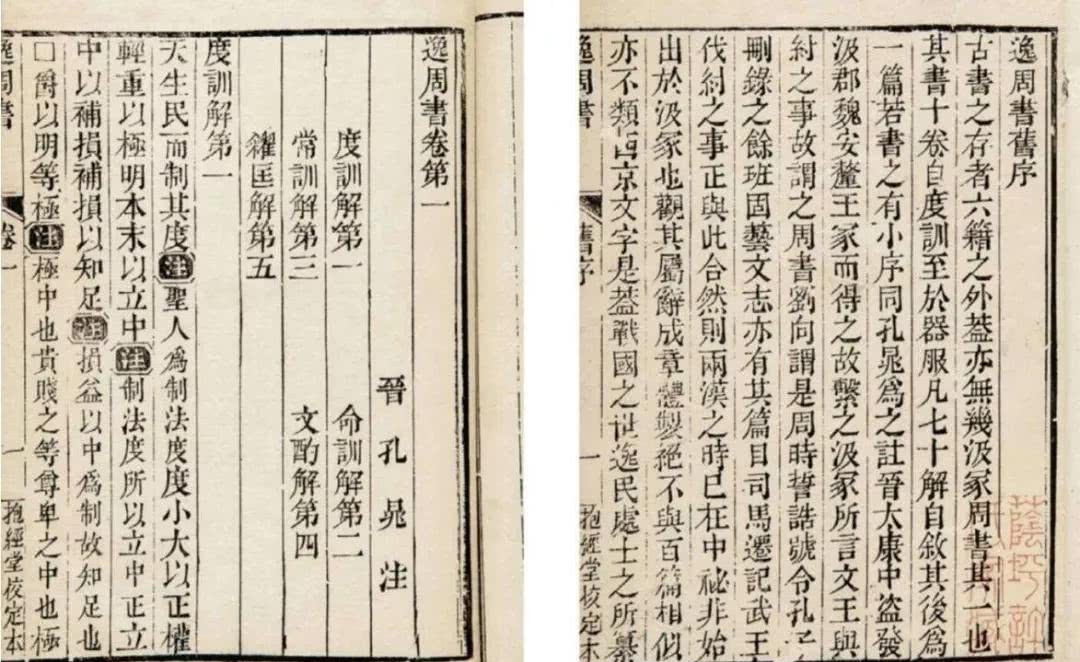 逸周書舊序
古書之存者六籍之外蓋亦無幾汲冢周書其一也
其書十卷自度訓至於器服凡七十解自敘其後爲
一篇若書之有小序同孔晁爲之註晉大康中盜發
汲郡魏安釐王冢而得之故繫之汲冢所言文王與
紂之事故謂之周書劉向謂是周時誓誥號令孔子
刪錄之餘班固藝文志亦有其篇目司馬遷記武王
伐紂之事正與此合然則兩漢之時已在中祕非始
出於汲冢也觀其屬辭成章體製絕不與百篇相似
亦不類西京文字是蓋戰國之世逸民處士之所纂
逸周書 舊序 一 抱經堂校定本
逸周書卷第一
晉 孔 晁 注
度訓解第一 命訓解第二
常訓解第三 文酌解第四
糴匡解第五
度訓解第一
天生民而制其度注聖人爲制法度度小大以正權
輕重以極明本末以立中注制法度所以立中正立
中以補損補損以知足注損益以中爲制故知足也
口爵以明等極注極中也貴賤之等尊卑之中也極
逸周書 卷一 一 抱經堂校定本